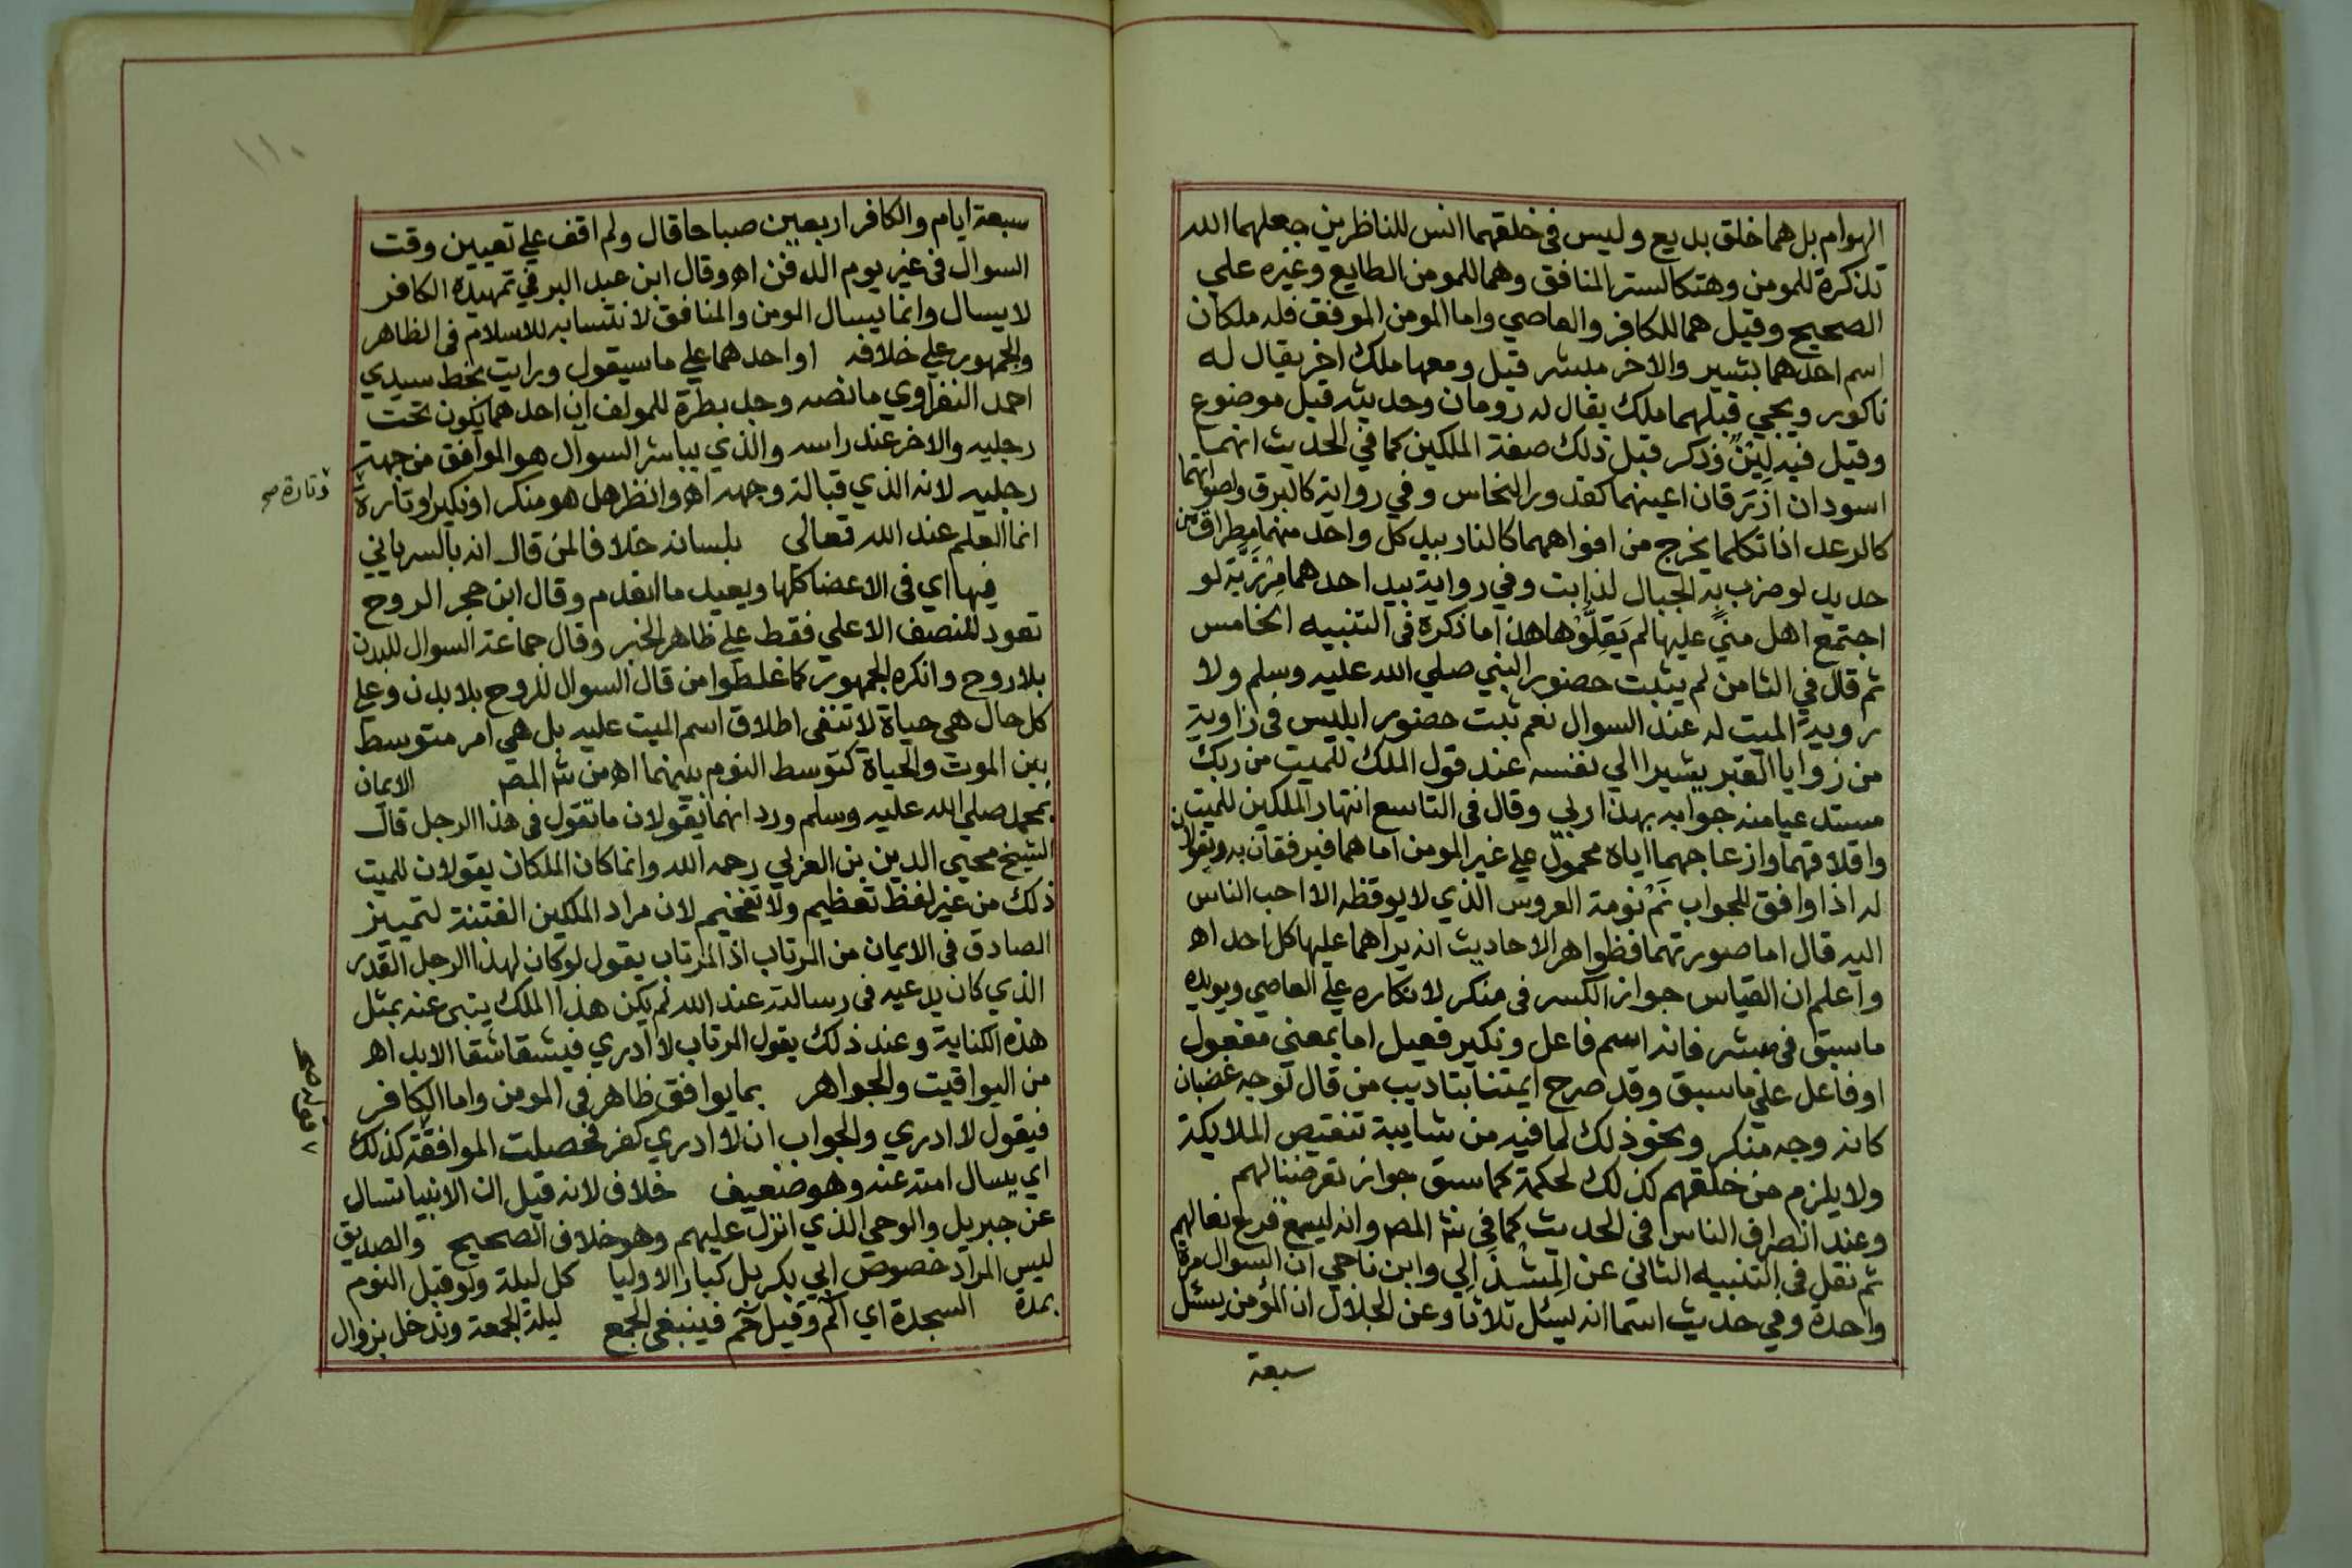 الهوام بل هما خلق بديع وليس في خلقهما انس للناظرين جعلهما الله
تذكرة للمومن وهتكا لستر المنافق وهما للمومن الطايع وغيره علي
الصحيح وقيل هما للكافر والعاصي واما المومن الموفق فله ملكان
اسم احدهما بشير والاخر مبشر قيل ومعهما ملك اخر يقال له
ناكور ويجي قبلهما ملك يقال له رومان وحديثه قيل موضوع
وقيل فيه لين وذكر قبل ذلك صفة الملكين كما في الحديث انهما
اسودان ازرقان اعينهما كقدور النحاس وفي رواية كالبرق واصواتهما
كالرعد اذا تكلما يخرج من افواههما كالنار بيد كل واحد منهما مطراق من
حديد لو ضرب به الجبال لذابت وفي رواية بيد احدهما مرزبة لو
اجتمع اهل مني عليها لم يقلوها هذا ما ذكره في التنبيه الخامس
ثم قال في الثامن لم يثبت حضور النبي صلي الله عليه وسلم ولا
روية الميت له عند السوال نعم ثبت حضور ابليس في زاوية
من زوايا القبر يشير الي نفسه عند قول الملك للميت من ربك
مستدعيا منه جوابه بهذا ربي وقال في التاسع انتهار الملكين للميت
واقلاقهما وازعاجهما اياه محمول علي غير المومن اما هما فيرفقان به ويقولان
له اذا وافق للجواب نم نومة العروس الذي لا يوقظه الا احب الناس
اليه قال اما صورتهما فظواهر الاحاديث انه يراهما عليها كل احد اه
واعلم ان القياس جواز الكسر في منكر لانكاره علي العاصي ويويده
ما سبق في مبشر فانه اسم فاعل ونكير فعيل اما بمعني مفعول
او فاعل علي ما سبق وقد صرح ايمتنا بتاديب من قال لوجه غضبان
كانه وجه منكر ونحو ذلك لما فيه من شايبة تنقيص الملايكة
ولا يلزم من خلقهم كذلك لحكمة كما سبق جواز تعرضنا لهم
وعند انصراف الناس في الحديث كما في ش المص وانه ليسمع قرع نعالهم
ثم نقل في التنبيه الثاني عن المشذالي وابن ناجي ان السوال مرة
واحدة وفي حديث اسما انه يسئل ثلاثا وعن الجلال ان المؤمن يسئل
سبعة
١١٠
سبعة ايام والكافر اربعين صباحا قال ولم اقف علي تعيين وقت
السوال في غير يوم الدفن اه وقال ابن عبد البر في تمهيده الكافر
لا يسال وانما يسال المومن والمنافق لانتسابه للاسلام في الظاهر
والجمهور علي خلافه او احدهما علي ما سيقول ورايت بخط سيدي
احمد النفراوي ما نصه وجد بطرة للمولف ان احدهما يكون تحت
رجليه والاخر عند راسه والذي يباشر السوال هو الموافق من جهة
رجليه لانه الذي قبالة وجهه اه وانظر هل هو منكر او نكير او تارة
وتارة صح
انما العلم عند الله تعالي بلسانه خلافا لمن قال انه بالسرياني
فيها اي في الاعضا كلها ويعيد ما انعدم وقال ابن حجر الروح
تعود للنصف الاعلي فقط علي ظاهر الخبر وقال جماعة السوال للبدن
بلا روح وانكره الجمهور كما غلطوا من قال السوال للروح بلا بدن وعلي
كل حال هي حياة لا تنفي اطلاق اسم الميت عليه بل هي امر متوسط
بين الموت والحياة كتوسط النوم بينهما اه من ش المص الايمان
بمحمد صلي الله عليه وسلم ورد انهما يقولان ما تقول في هذا الرجل قال
الشيخ محيي الدين بن العربي رحمه الله وانما كان الملكان يقولان للميت
ذلك من غير لفظ تعظيم ولا تفخيم لان مراد الملكين الفتنة لتمييز
الصادق في الايمان من المرتاب اذ المرتاب يقول لو كان لهذا الرجل القدر
الذي كان يدعيه في رسالته عند الله لم يكن هذا الملك ينبي عنه بمثل
هذه الكناية وعند ذلك يقول المرتاب لا ادري فيشقا شقا الابد اه
من اليواقيت والجواهر بما يوافق ظاهر في المومن واما الكافر
فيقول لا ادري والجواب ان لا ادري كفر فحصلت الموافقة كذلك
اي يسال امته عنه وهو ضعيف خلاف لانه قيل ان الانبيا تسال
عن جبريل والوحي الذي انزل عليهم وهو خلاف الصحيح والصديق
ليس المراد خصوص ابي بكر بل كبار الاوليا كل ليلة ولو قبل النوم
بمدة السجدة اي الم وقيل حم فينبغي الجمع ليلة الجمعة وتدخل بزوال